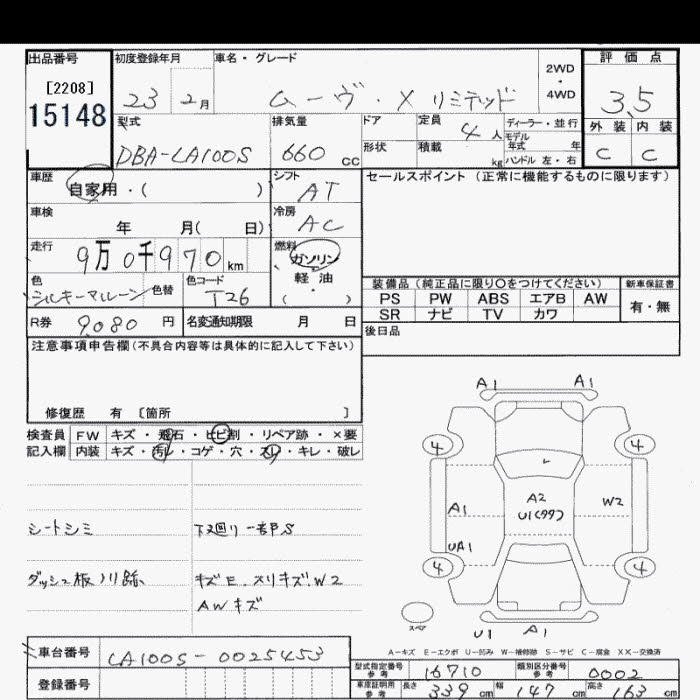 出品番号
[2208]
15148
初度登録年月
23 2月
車名・グレード
ムーヴ・X リミテッド
2WD
・
4WD
評価点
3.5
型式
DBA-LA100S
排気量
660 cc
ドア
形状
定員
4人
積載
kg
ディーラー・並行
モデル
年式 年
ハンドル 左・右
外装 内装
C C
車歴
自家用・( )
シフト
AT
セールスポイント (正常に機能するものに限ります)
車検
年 月( 日)
冷房
AC
走行
9万0千970km
燃料
ガソリン
軽油
( )
色
シルキーマルーン
色替
色コード
T26
装備品(純正品に限り○をつけてください)
PS PW ABS エアB AW
SR ナビ TV カワ
新車保証書
有・無
R券 9,080 円
名変通知期限 月 日
後日品
注意事項申告欄(不具合内容等は具体的に記入して下さい)
修復歴 有 〔箇所 〕
検査員 FW キズ・飛石・ヒビ割・リペア跡・×要
記入欄 内装 キズ・汚レ・コゲ・穴・スレ・キレ・破レ
シートシミ
下廻り一部S
ダッシュ板ノリ跡
キズE、スリキズW2
AWキズ
A1 A1
4 4
A2
U1(99)
A1
W2
UA1
4 4
スペア
U1 A1
A-キズ E-エクボ U-凹み W-補修跡 S-サビ C-腐食 XX-交換済
車台番号 LA100S-0025453
登録番号
型式指定番号
参考
16710
類別区分番号
参考
0002
車庫証明用
参考
長さ 339 cm 幅 147 cm 高さ 163 cm